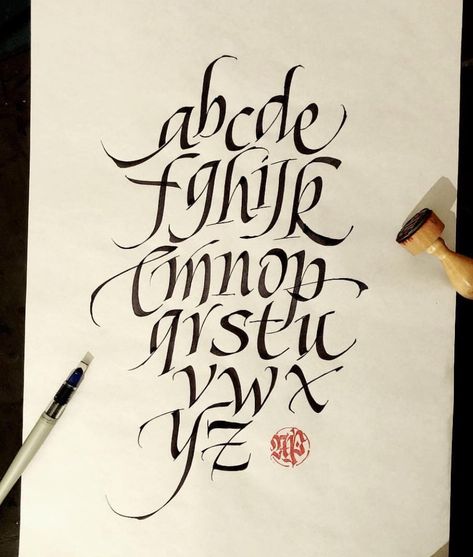 abcde
fghijk
lmnop
qrstu
vwx
yz